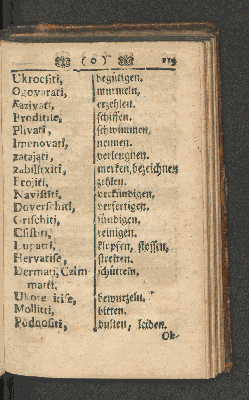 ( 0 ) 119
Ukrocsiti, begütigen.
Ogovarati, murmeln.
Kazivati, erzehlen.
Broditise, schiffen.
Plivati, schwimmen.
Imenovati, nennen.
zatajati, verleugnen.
zabilixiti, merken, bezeichnen
Brojiti, zehlen.
Navistiti, verkündigen.
Doverschiti, verfertigen.
Grischiti, sündigen.
Csistiti, reinigen.
Lupati, klopfen, stossen,
Hervatise, streiten.
Dermati, Czim- schütteln,
mati.
bewurzeln.
Molliti, bitten.
Podnositi, dulten, leiden.
Ok-